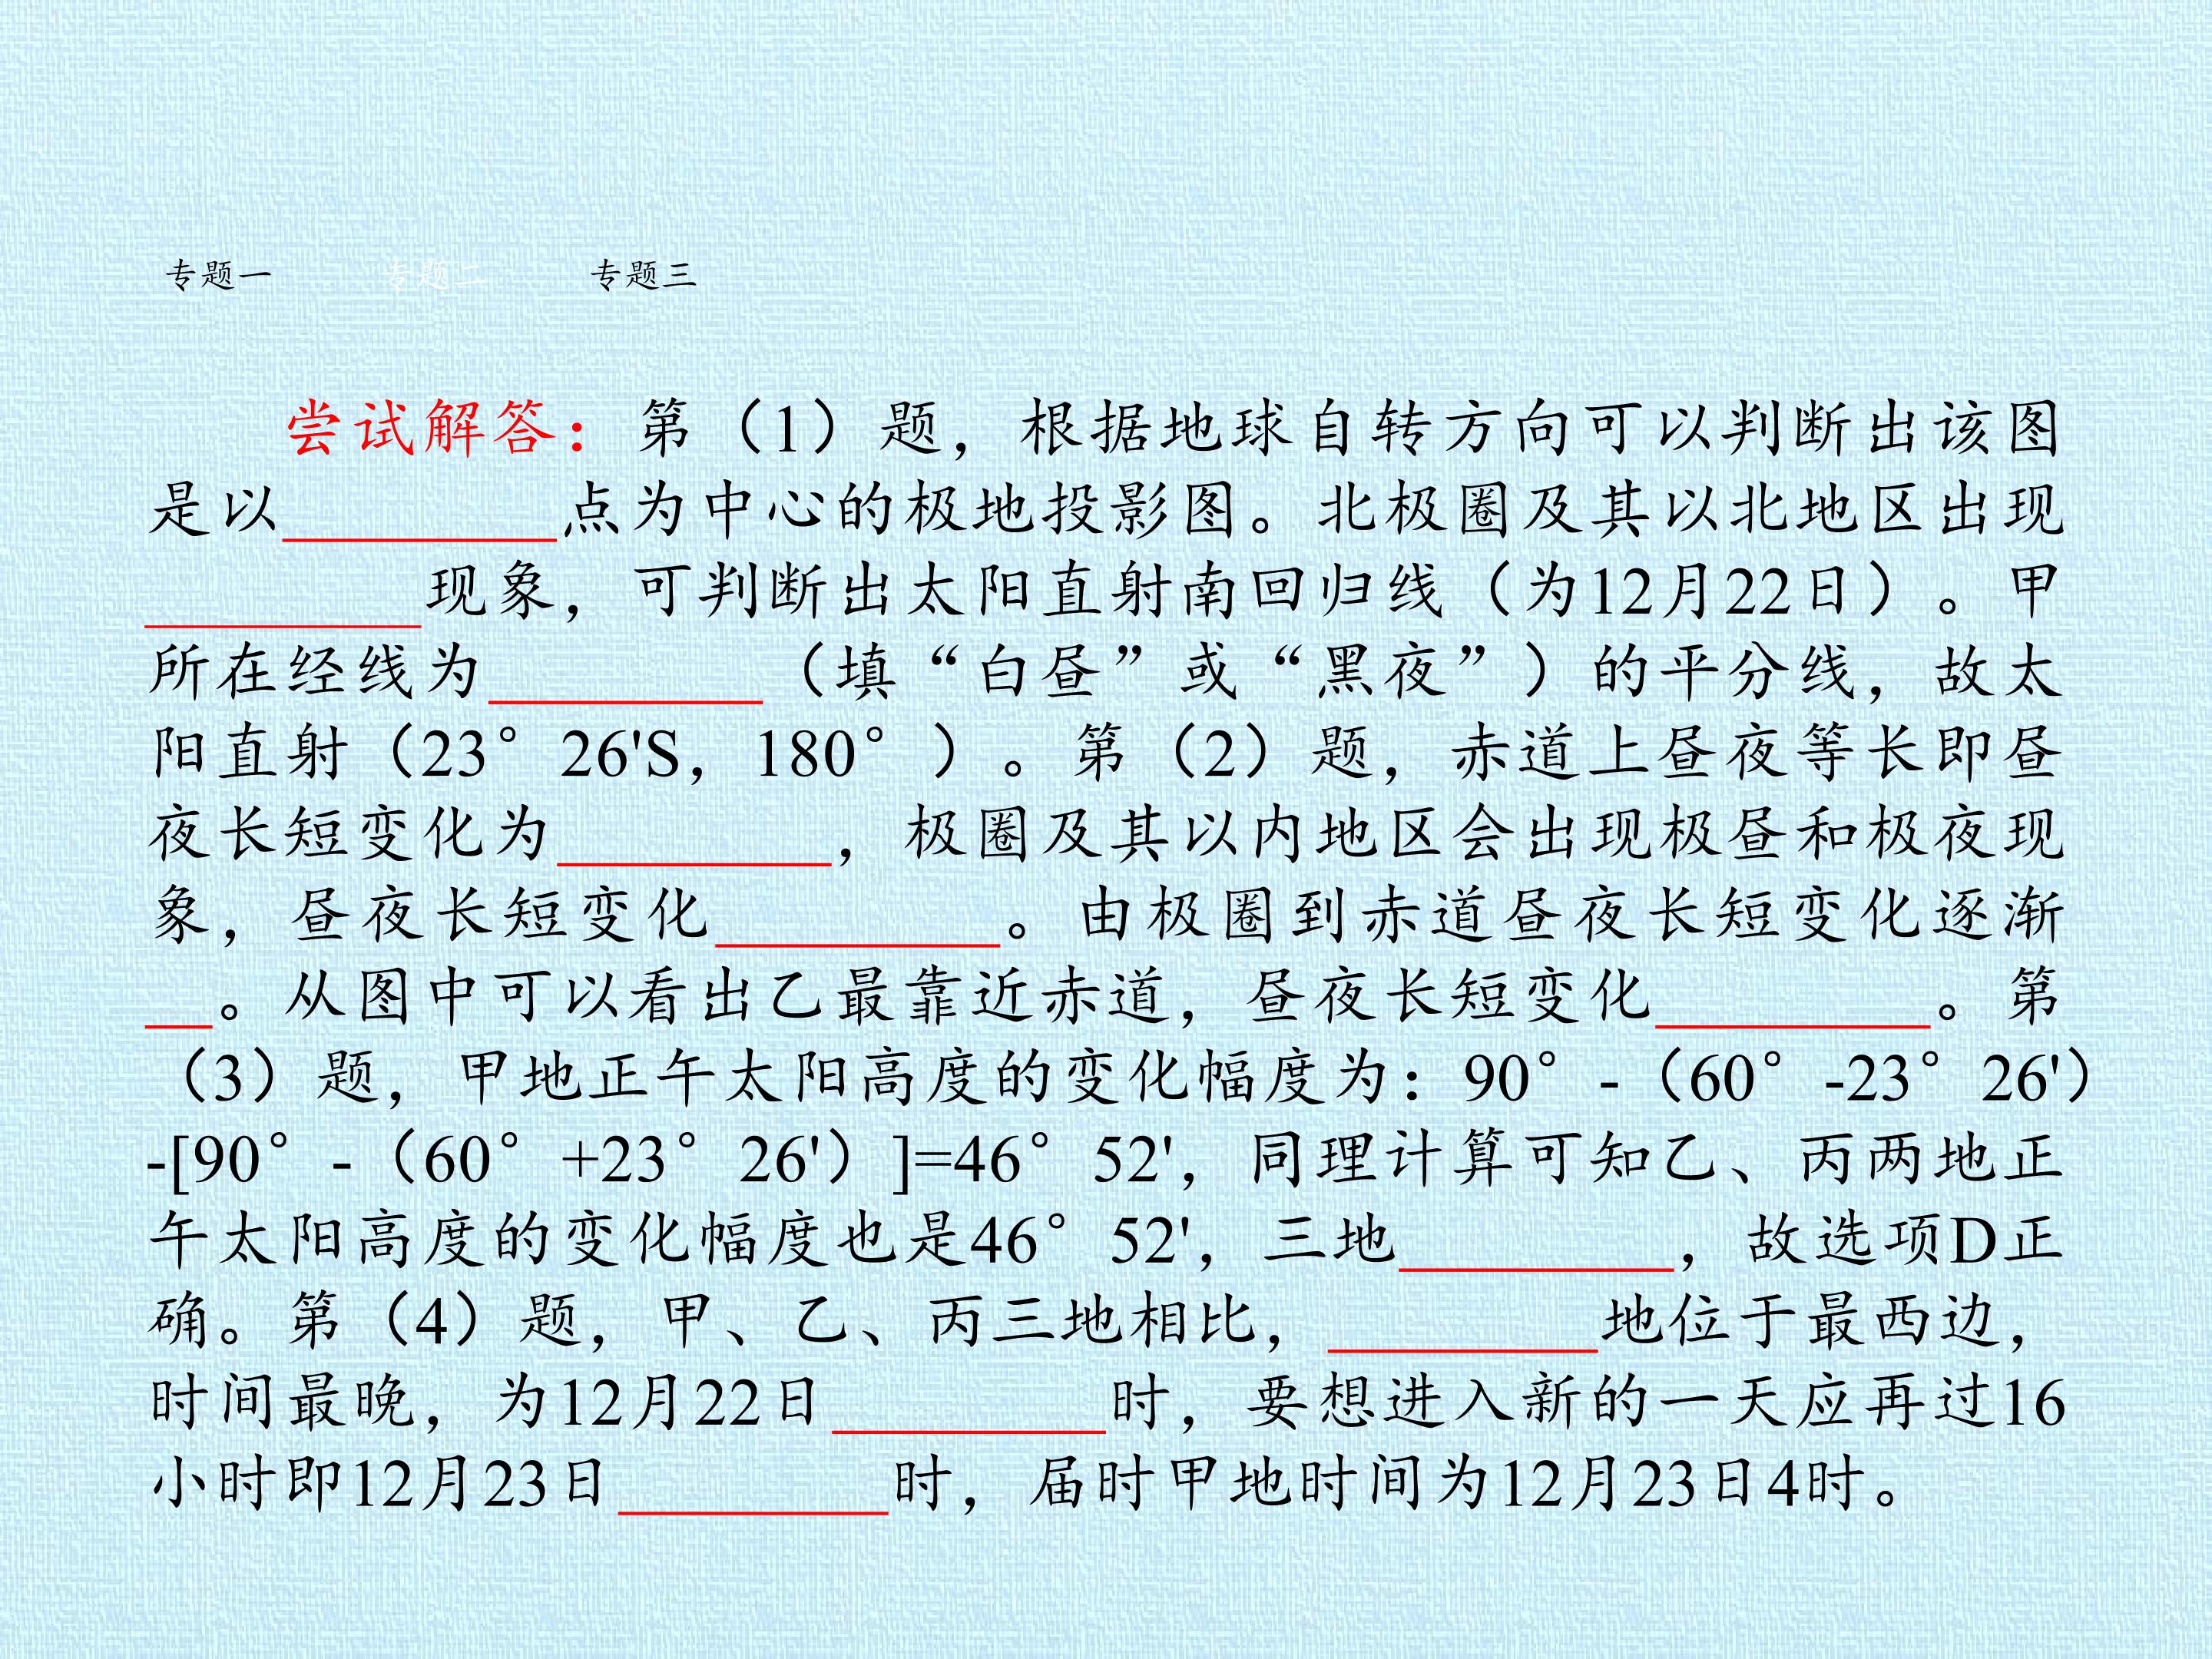 专题一 专题二 专题三
尝试解答：第（1）题，根据地球自转方向可以判断出该图
是以________点为中心的极地投影图。北极圈及其以北地区出现
________现象，可判断出太阳直射南回归线（为12月22日）。甲
所在经线为________（填“白昼”或“黑夜”）的平分线，故太
阳直射（23°26'S，180°）。第（2）题，赤道上昼夜等长即昼
夜长短变化为________，极圈及其以内地区会出现极昼和极夜现
象，昼夜长短变化________。由极圈到赤道昼夜长短变化逐渐
__。从图中可以看出乙最靠近赤道，昼夜长短变化________。第
（3）题，甲地正午太阳高度的变化幅度为：90°-（60°-23°26'）
-[90°-（60°+23°26'）]=46°52'，同理计算可知乙、丙两地正
午太阳高度的变化幅度也是46°52'，三地________，故选项D正
确。第（4）题，甲、乙、丙三地相比，________地位于最西边，
时间最晚，为12月22日________时，要想进入新的一天应再过16
小时即12月23日________时，届时甲地时间为12月23日4时。